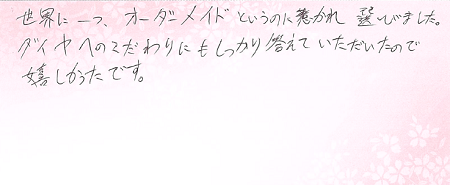 世界に一つ、オーダーメイドというのに惹かれ 選びました。
ダイヤへのこだわりにもしっかり答えていただいたので
嬉しかったです。